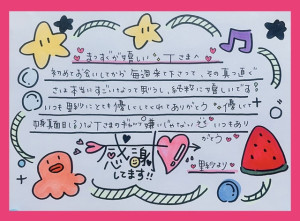 まっすぐが嬉しい Tさまへ
初めてお会いしてから毎週来て下さって、その真っ直ぐ
さは本当にすごいなって思うし、純粋に嬉しいです!
いつも野紗にとても優しくしてくれてありがとう 優しくて
真面目そうなTさまのギャップ嫌いじゃないぞ いつもあり
がとう
大感謝
してます!!
野紗より